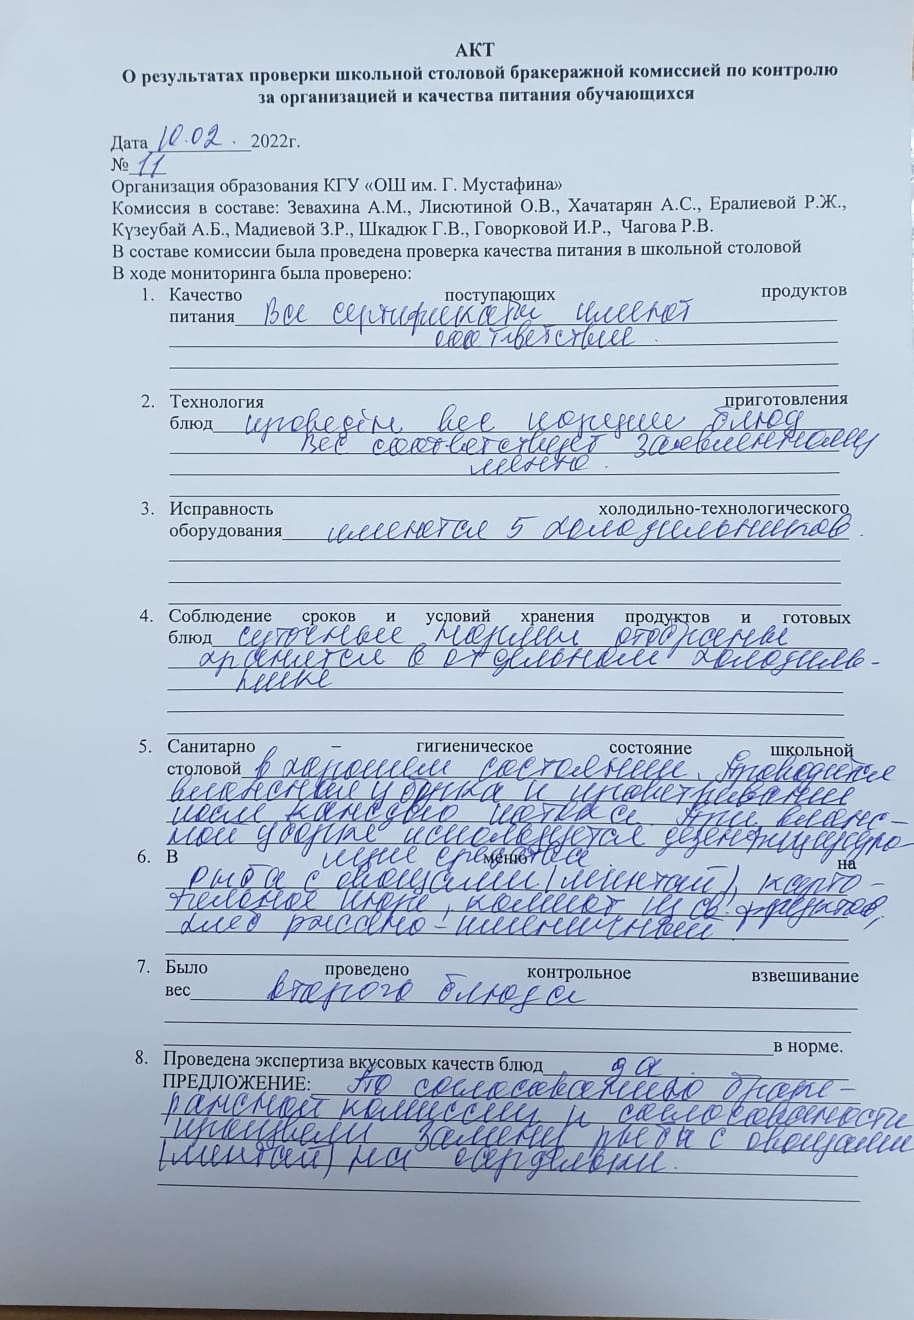 АКТ
О результатах проверки школьной столовой бракеражной комиссией по контролю
за организацией и качества питания обучающихся
Дата 10.02. 2022г.
№ 11
Организация образования КГУ «ОШ им. Г. Мустафина»
Комиссия в составе: Зевахина А.М., Лисютиной О.В., Хачатарян А.С., Ералиевой Р.Ж.,
Кузеубай А.Б., Мадиевой З.Р., Шкадюк Г.В., Говорковой И.Р., Чагова Р.В.
В составе комиссии была проведена проверка качества питания в школьной столовой
В ходе мониторинга была проверено:
1. Качество поступающих продуктов
питания Все сертификаты имеют
соответствие.
2. Технология приготовления
блюд проведён вес порции блюд
Вес соответствует заявленному
меню.
3. Исправность холодильно-технологического
оборудования имеются 5 холодильников.
4. Соблюдение сроков и условий хранения продуктов и готовых
блюд суточные отобраны
хранится в отдельном холодиль-
нике
5. Санитарно – гигиеническое состояние школьной
столовой в хорошем состоянии. Проводится
влажная уборка и проветривание
после каждого потока. При влаж-
ной уборке используется дезинфицирую-
щие средства.
6. В меню на
рыба с овощами (минтай), карто-
фельное пюре, компот из св. фруктов,
хлеб ржано-пшеничный.
7. Было проведено контрольное взвешивание
вес второго блюда
в норме.
8. Проведена экспертиза вкусовых качеств блюд да.
ПРЕДЛОЖЕНИЕ: По согласованию браке-
ражной комиссии и согласованности
произвели замену рыбы с овощами
(минтай) на сардельки.